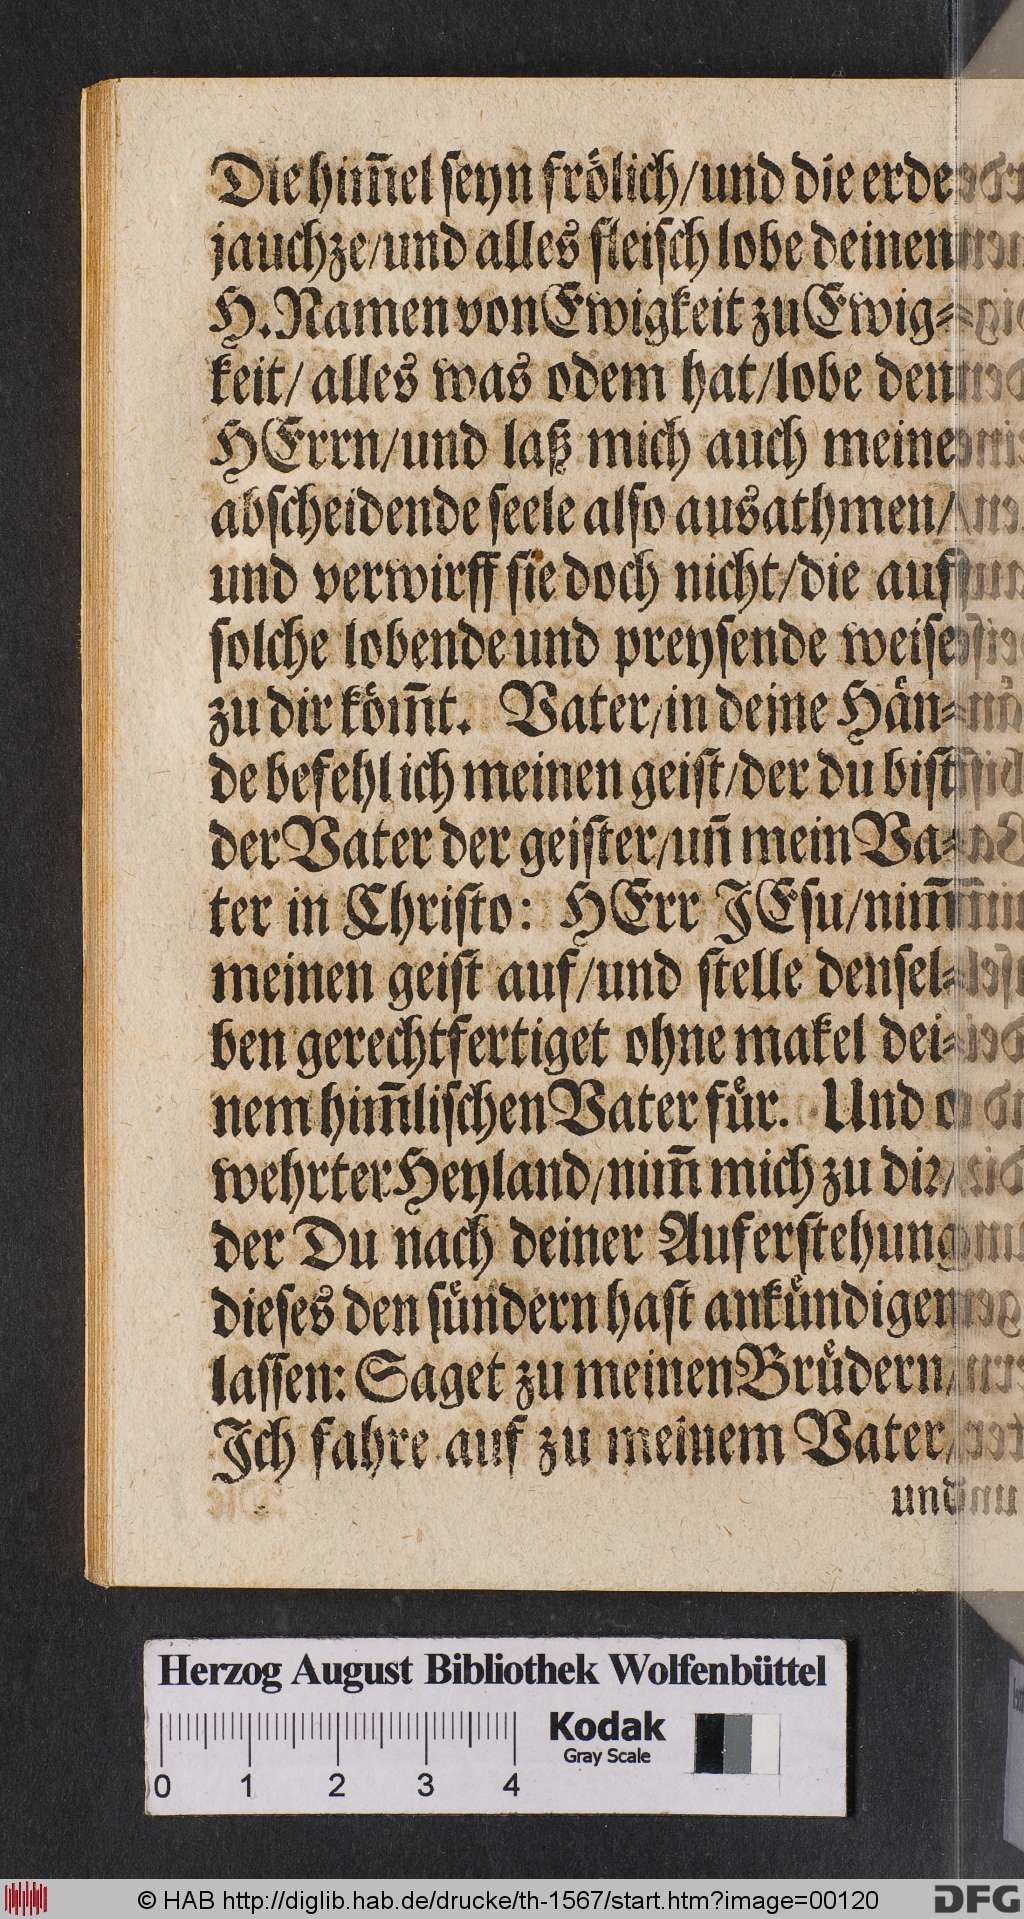 Die him̃el seyn frölich/und die erde
jauchze/und alles fleisch lobe deinen
H. Namen von Ewigkeit zu Ewig-
keit/ alles was odem hat/lobe den
HErrn/und laß mich auch meine
abscheidende seele also ausathmen/
und verwirff sie doch nicht/die auf
solche lobende und preysende weise
zu dir köm̃t. Vater/in deine Hän-
de befehl ich meinen geist/der du bist
der Vater der geister/uñ mein Va-
ter in Christo: HErr JEsu/nim̃
meinen geist auf/und stelle densel-
ben gerechtfertiget ohne makel dei-
nem him̃lischen Vater für. Und o
wehrter Heyland/nim̃ mich zu dir/
der Du nach deiner Auferstehung
dieses den sündern hast ankündigen
lassen: Saget zu meinen Brüdern/
Ich fahre auf zu meinem Vater/
und
Herzog August Bibliothek Wolfenbüttel
Kodak
Gray Scale
0 1 2 3 4
© HAB http://diglib.hab.de/drucke/th-1567/start.htm?image=00120
DFG